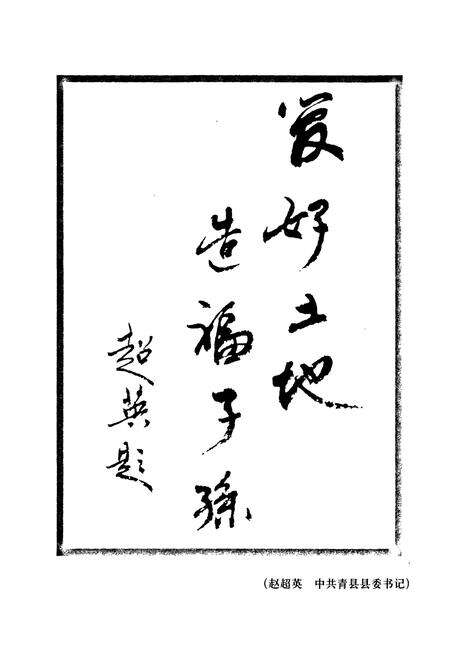 管好土地
造福子孫
超英题
（赵超英　中共青县县委书记）